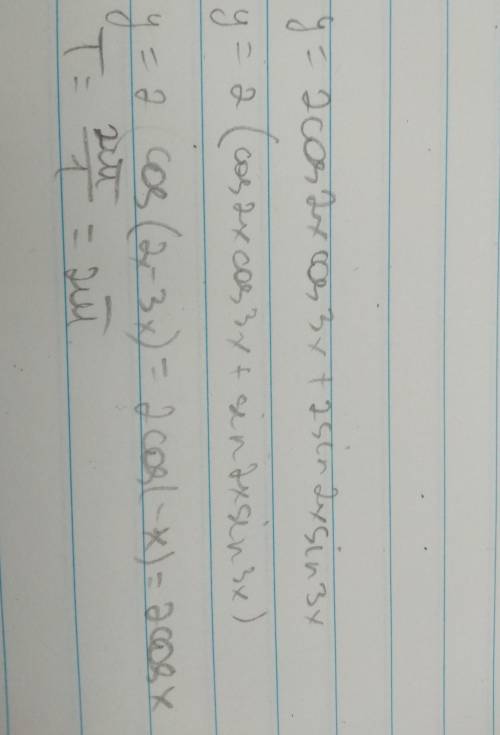 y = 2cos2x cos3x + 2sin2x sin3x
y = 2 (cos2x cos3x + sin2x sin3x)
y = 2 cos(2x-3x) = 2cos(-x) = 2cosx
T = 2π/1 = 2π